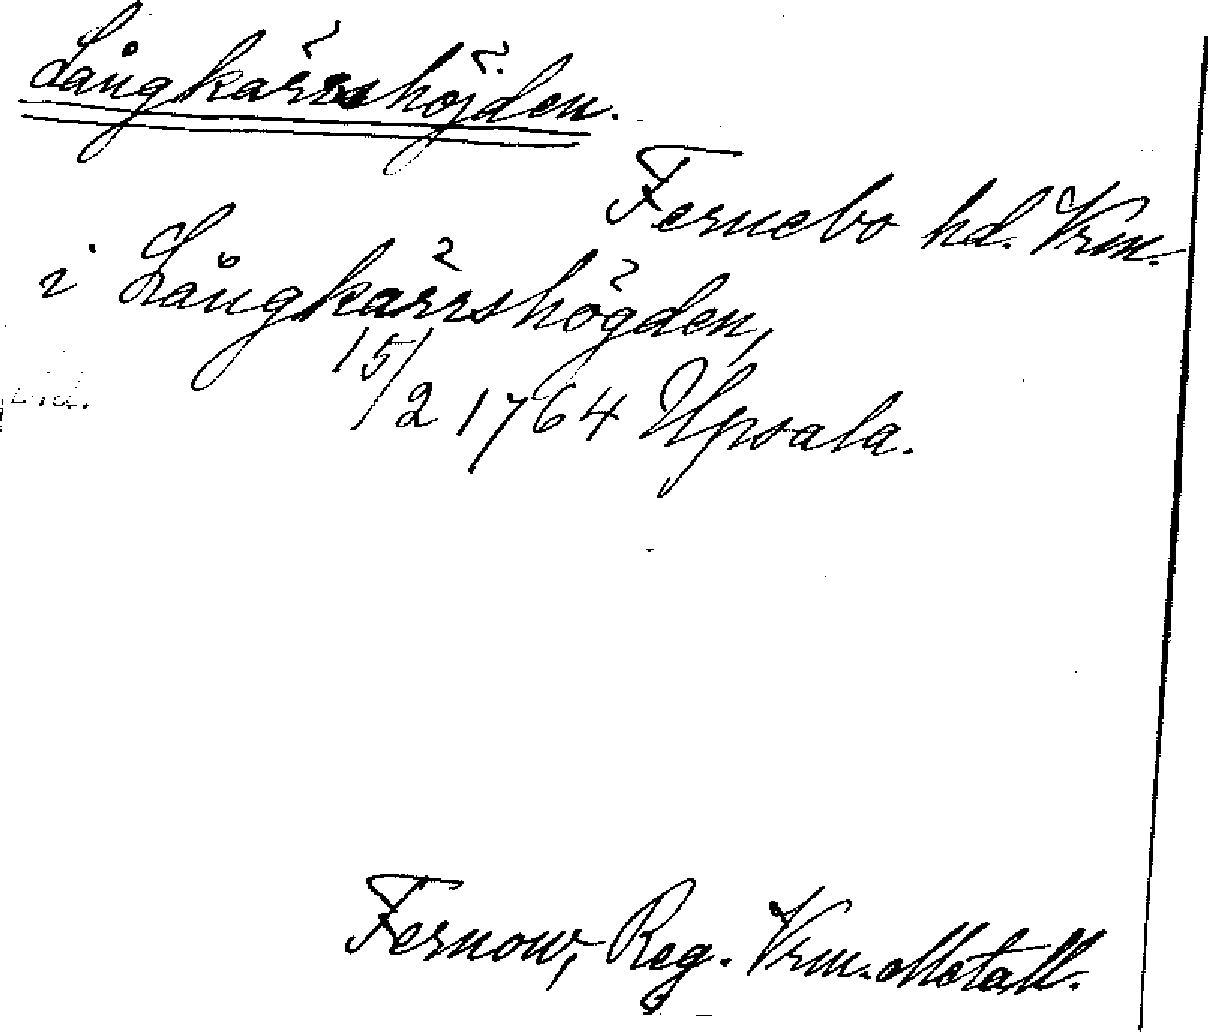 Långkärrshöjden.
Fernebo hd. Vrm.
i Långkärrshögden,
15/2 1764 Upsala.
Fernow, Reg. Vrm. Metall.